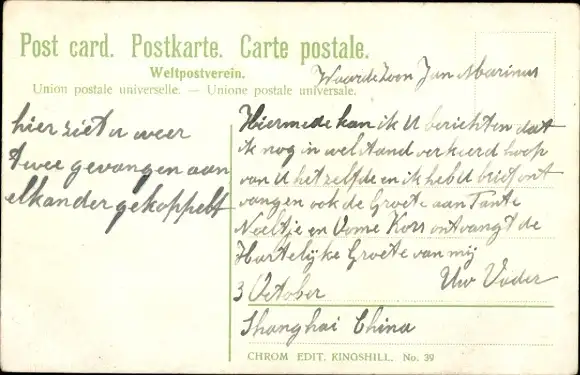 Post card. Postkarte. Carte postale.
Weltpostverein.
Union postale universelle. — Unione postale universale.
Waarde Zoon Jan Marinus
hier ziet u weer
twee gevangen aan
elkander gekoppelt
Hiermede kan ik U berichten dat
ik nog in welstand verkeerd hoop
van U het zelfde en ik heb U brief ont
vangen ook de Groete aan Tante
Neeltje en Oome Kors ontvangt de
Hartelijke Groete van mij
Uw Vader
3 October
Shanghai China
CHROM EDIT. KINGSHILL. No. 39